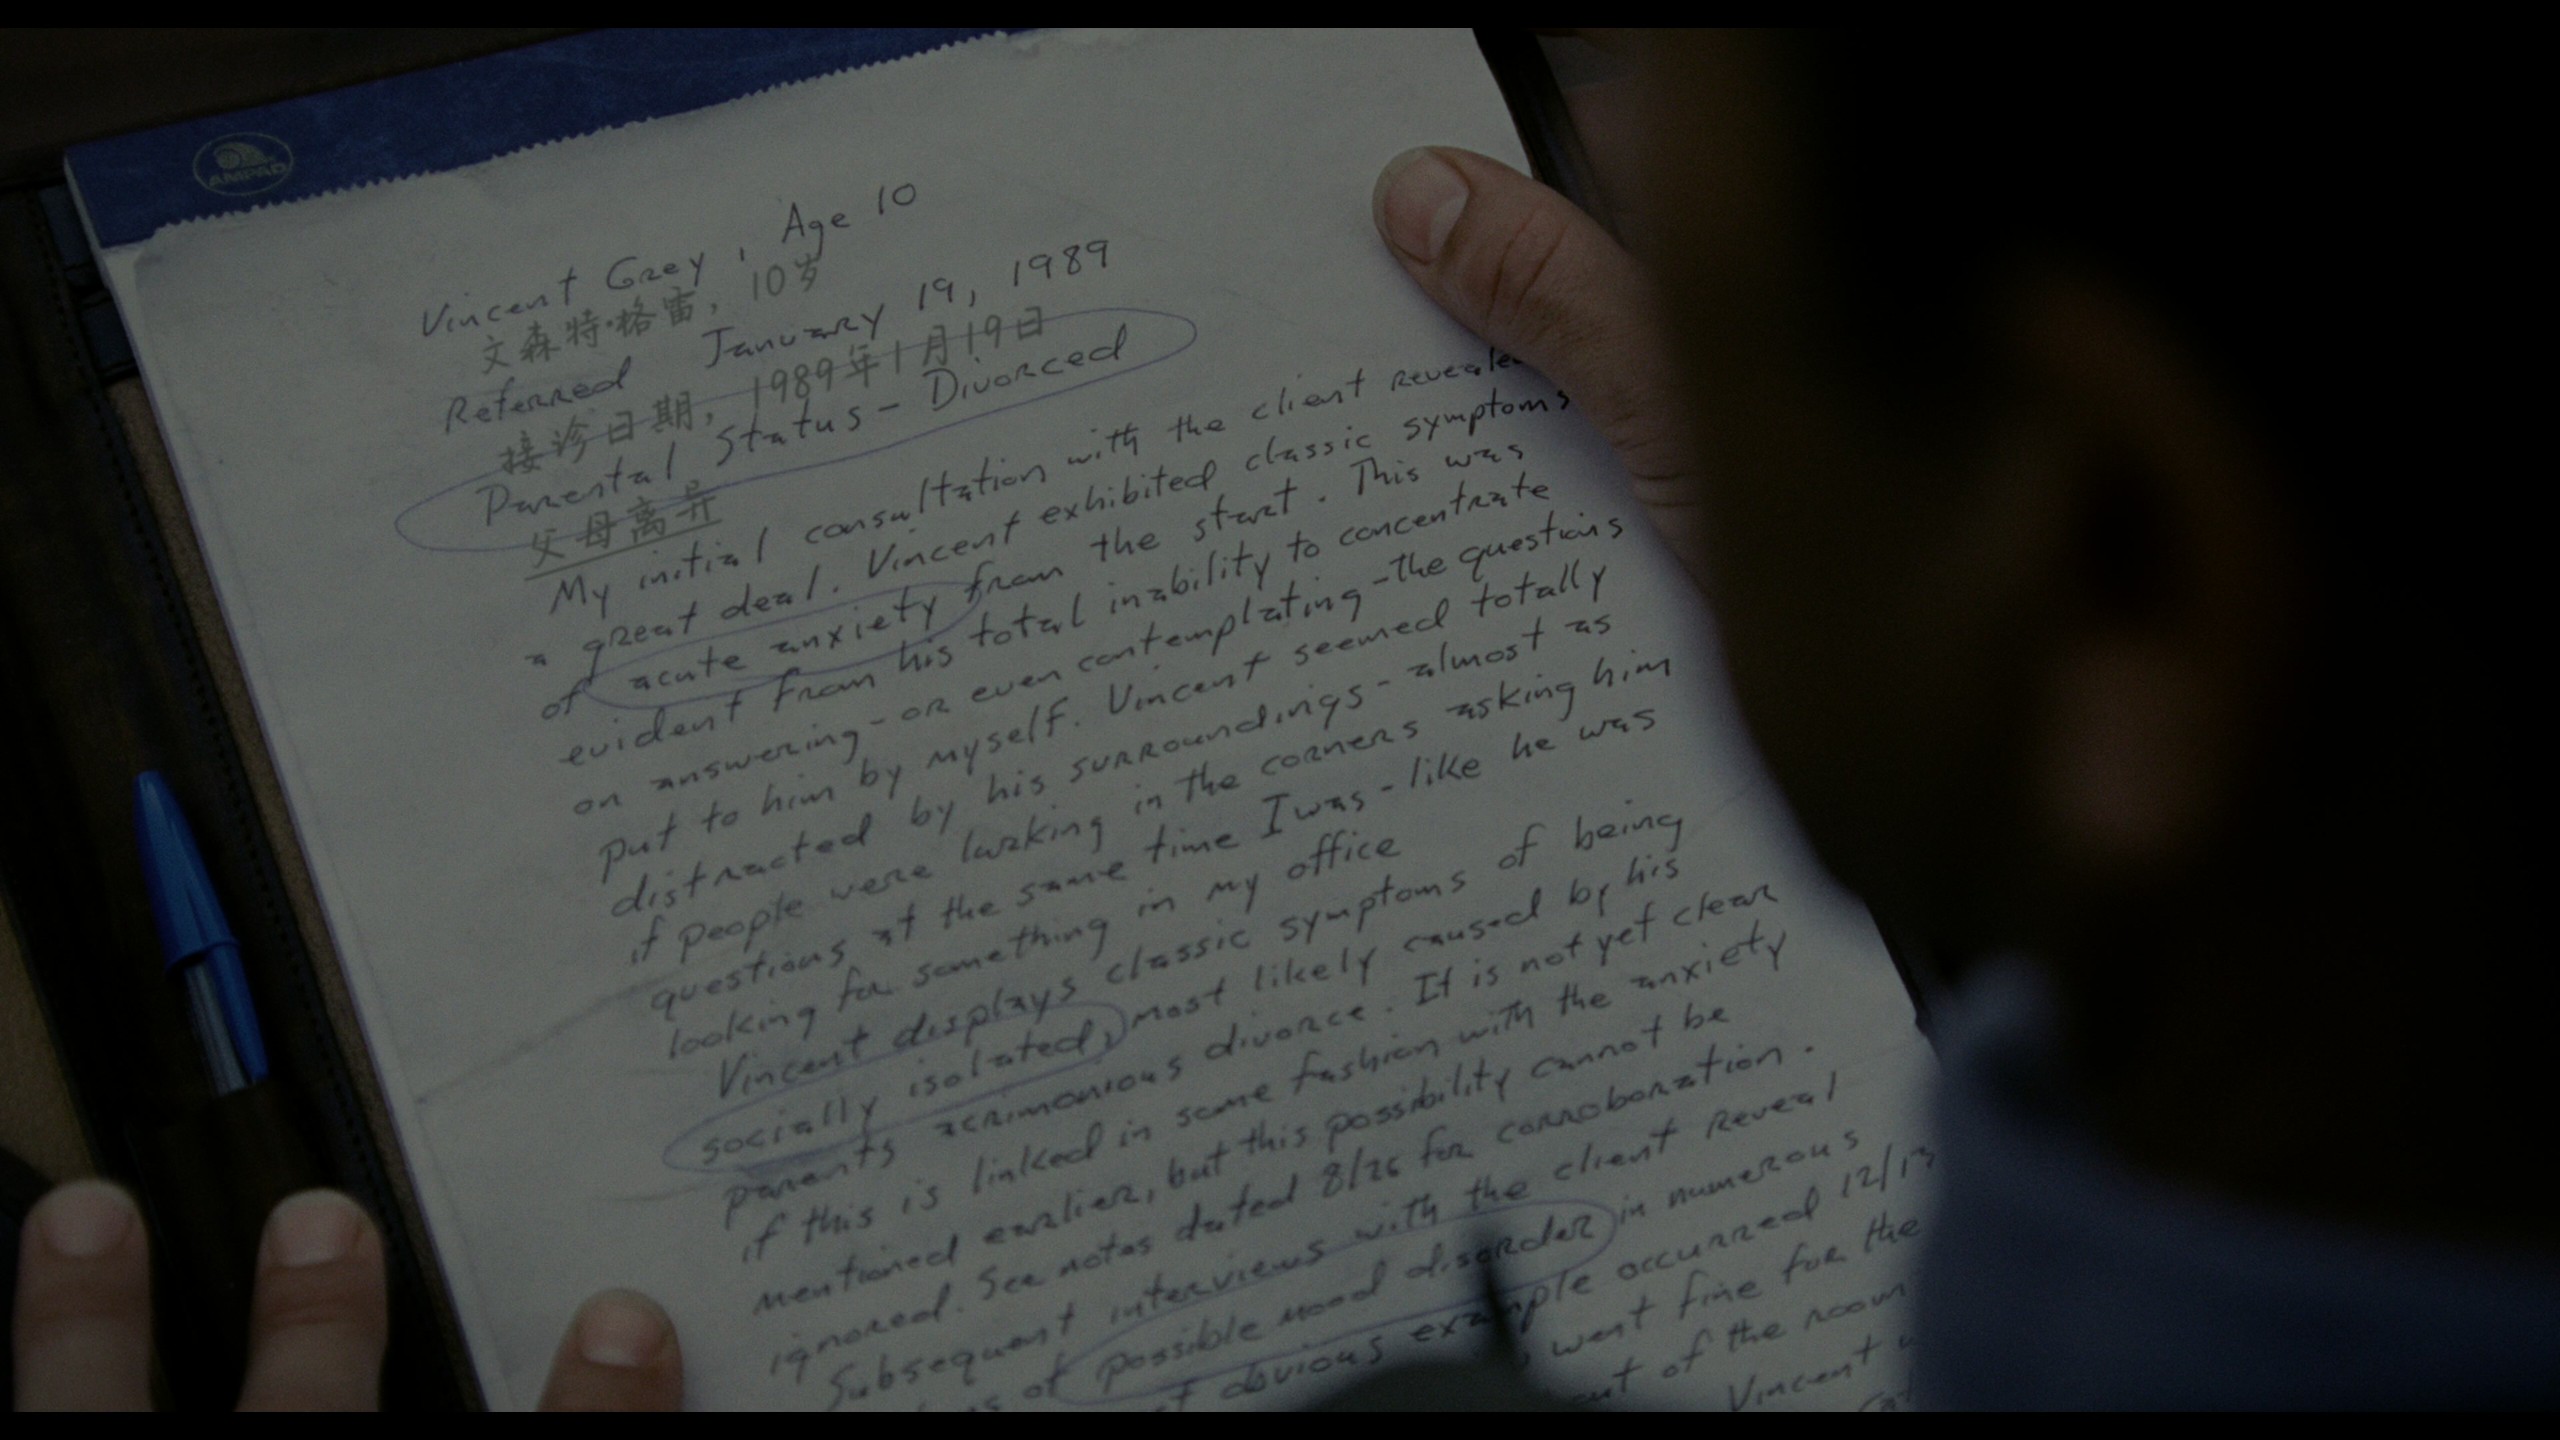 AMPAD
Vincent Grey, Age 10
文森特·格雷, 10岁
Referred January 19, 1989
接诊日期, 1989年1月19日
Parental Status - Divorced
父母离异
My initial consultation with the client revealed
a great deal. Vincent exhibited classic symptoms
of acute anxiety from the start. This was
evident from his total inability to concentrate
on answering - or even contemplating - the questions
put to him by myself. Vincent seemed totally
distracted by his surroundings - almost as
if people were lurking in the corners asking him
questions at the same time I was - like he was
looking for something in my office
Vincent displays classic symptoms of being
socially isolated, most likely caused by his
parents acrimonious divorce. It is not yet clear
if this is linked in some fashion with the anxiety
mentioned earlier, but this possibility cannot be
ignored. See notes dated 8/26 for corroboration.
Subsequent interviews with the client reveal
of possible mood disorder in numerous
obvious example occurred 12/13
went fine for the
out of the room
Vincent